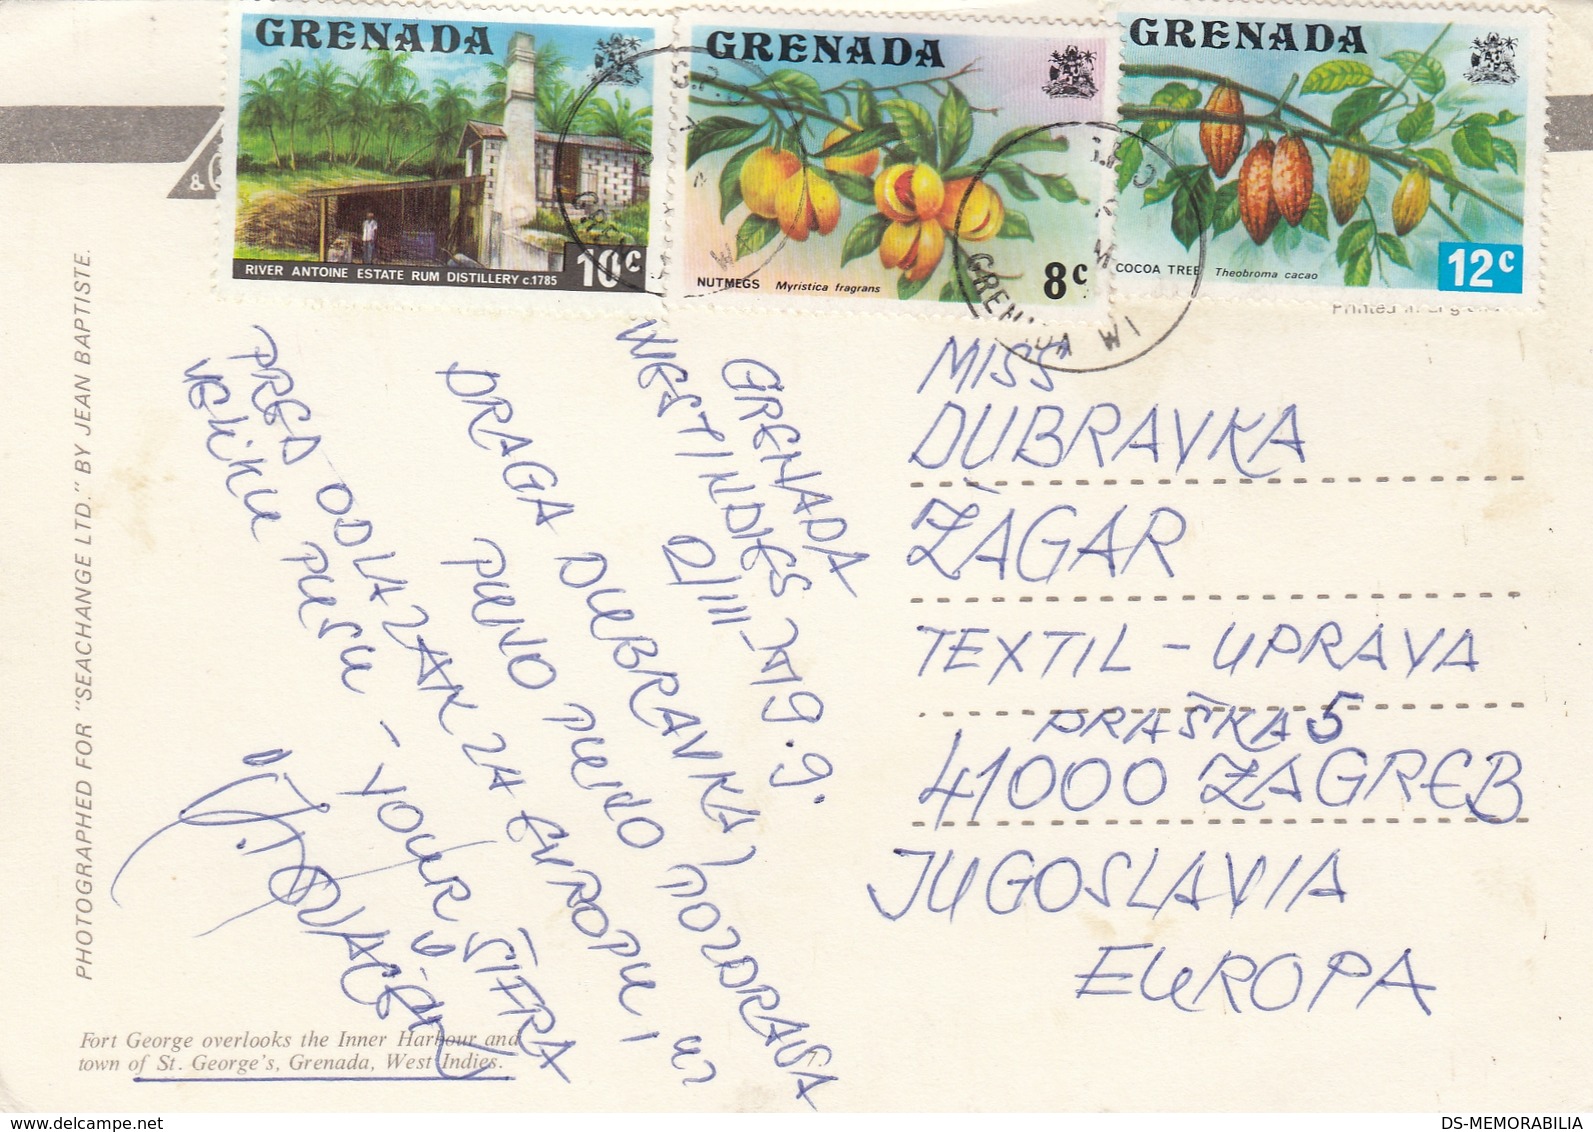 GRENADA
RIVER ANTOINE ESTATE RUM DISTILLERY c.1785
10c
GRENADA
NUTMEGS Myristica fragrans
8c
GRENADA
COCOA TREE Theobroma cacao
12c
GRENADA WI
Printed in England
PHOTOGRAPHED FOR "SEACHANGE LTD." BY JEAN BAPTISTE.
GRENADA
WEST INDIES
DRAGA DUBRAVKA,
PUNO PUNO POZDRAVA
PRED ODLAZAK ZA EVROPU, UZ
VELIKU PUSU - YOUR ŠIFRA
MISS
DUBRAVKA
ŽAGAR
TEXTIL - UPRAVA
PRAŠKA 5
41000 ZAGREB
JUGOSLAVIA
EUROPA
Fort George overlooks the Inner Harbour and
town of St. George's, Grenada, West Indies.
DS-MEMORABILIA